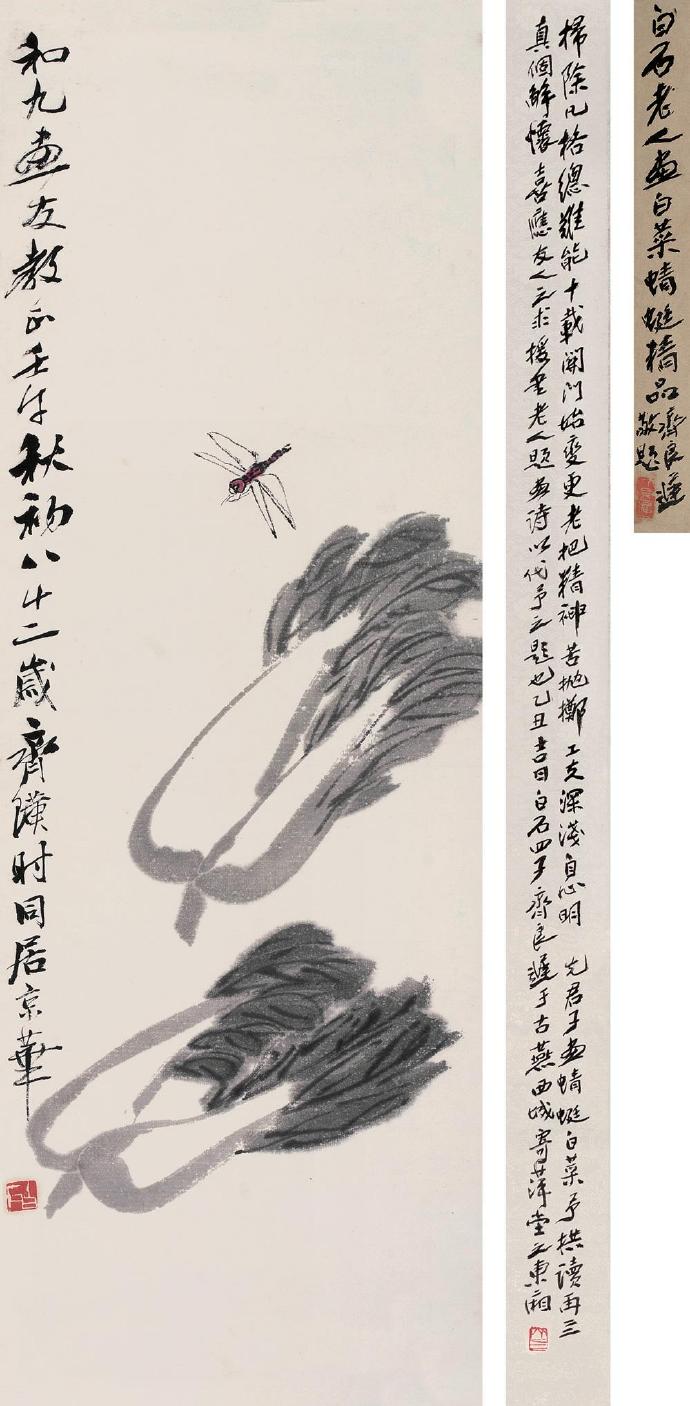 白石老人畫白菜蜻蜓精品齊良遲
敬題
掃除凡格總難能十載關門始變更老把精神苦拋擲工夫深淺自心明 先君子畫蜻蜓白菜予拱讀再三
真個解懷喜應友人之求援老人題畫詩以代予之題也乙丑吉日白石四子齊良遲于古燕西城寄萍堂之東廂
和九畫友教正壬午秋初八十二歲齊璜時同居京華
白石